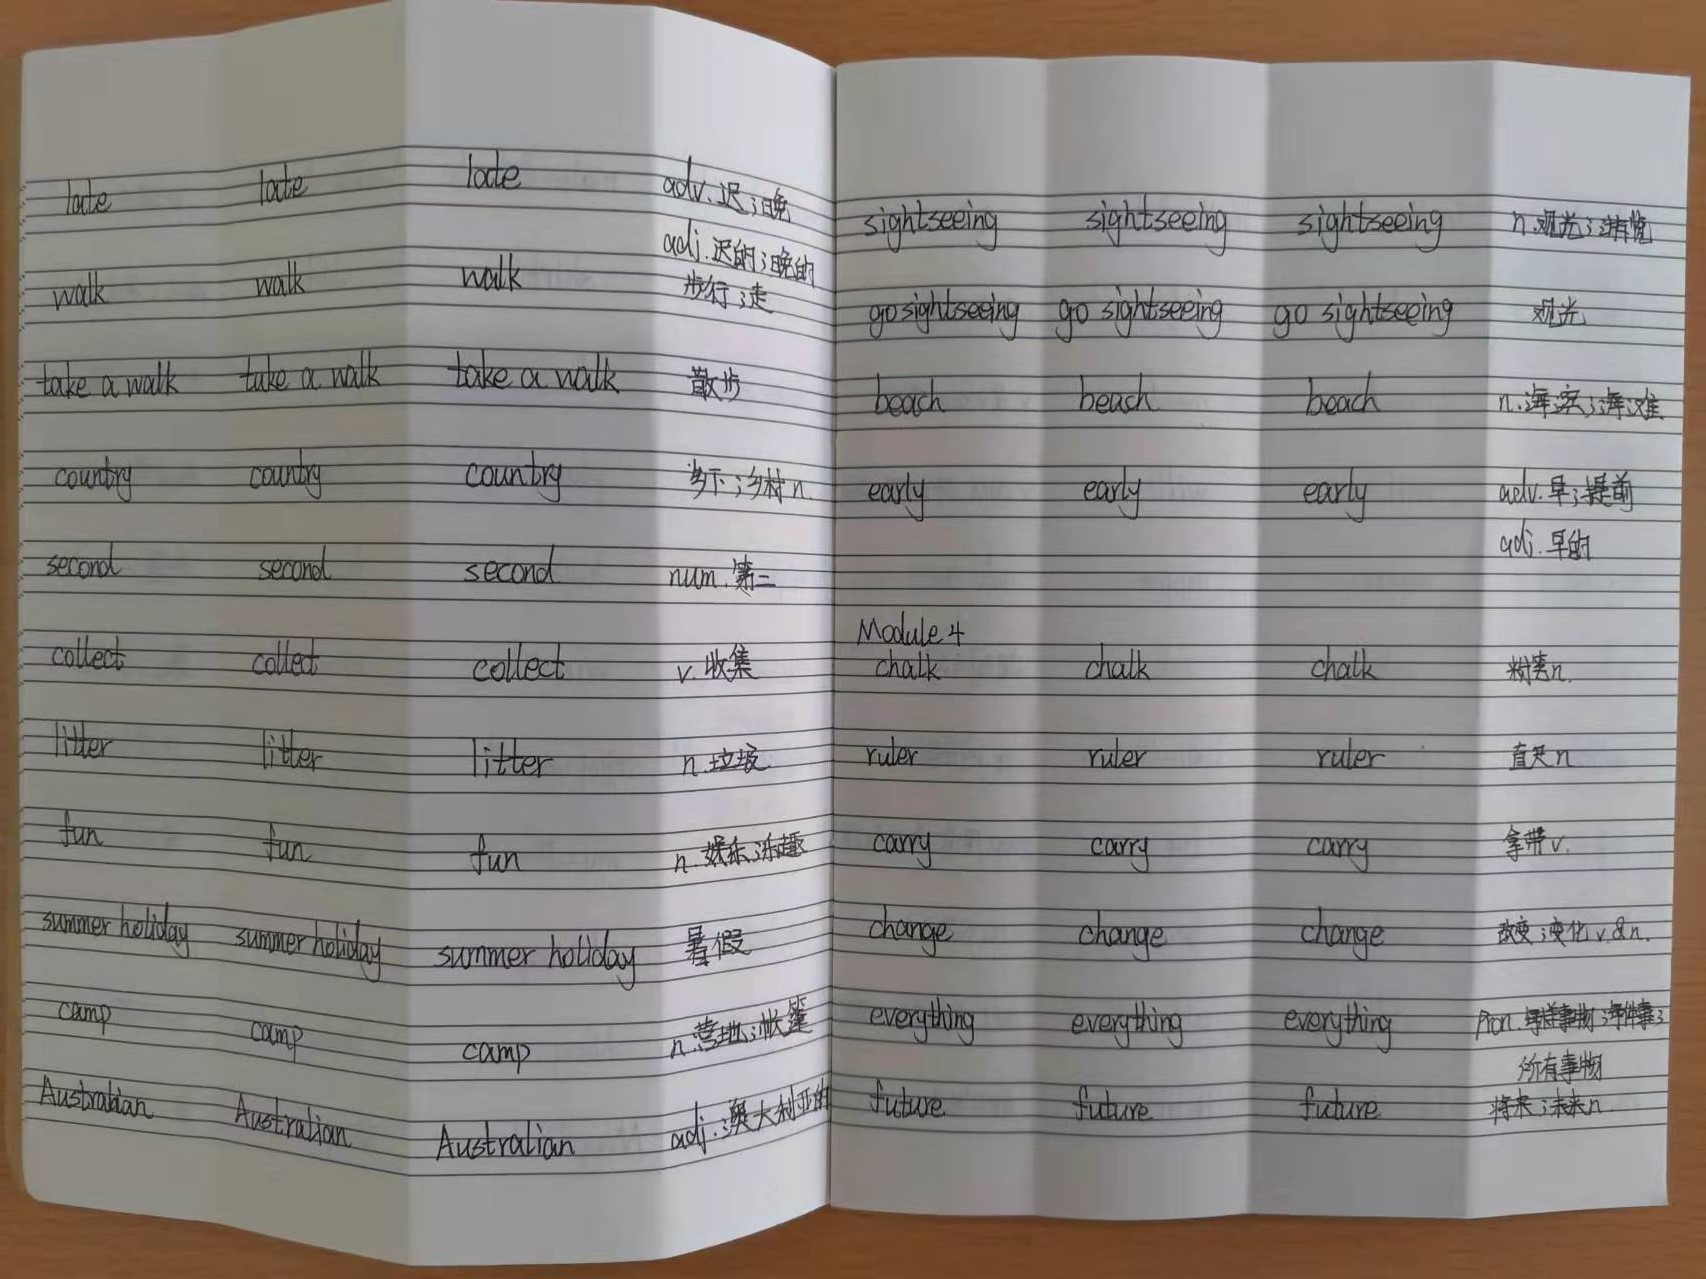 late late late adv.迟;晚
adj.迟的;晚的
walk walk walk 步行;走
take a walk take a walk take a walk 散步
country country country 乡下;乡村 n.
second second second num.第二
collect collect collect v.收集
litter litter litter n.垃圾
fun fun fun n.娱乐;乐趣
summer holiday summer holiday summer holiday 暑假
camp camp camp n.营地;帐篷
Australian Australian Australian adj.澳大利亚的
sightseeing sightseeing sightseeing n.观光;游览
go sightseeing go sightseeing go sightseeing 观光
beach beach beach n.海滨;海滩
early early early adv.早;提前
adj.早的
Module 4
chalk chalk chalk 粉笔n.
ruler ruler ruler 直尺n
carry carry carry 拿带v.
change change change 改变;变化v.&n.
everything everything everything Pron.每样事物;每件事;
所有事物
future future future 将来;未来n.